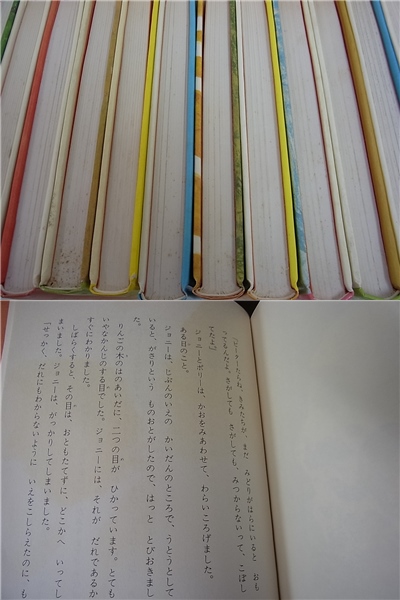 「ピーターたらね、きみたちが、まだ　みどりがはらにいると　おも
ってるんだよ。さがしても　さがしても、みつからないって、こぼし
てたよ」
ジョニーとポリーは、かおをみあわせて、わらいころげました。
ある日のこと。
ジョニーは、じぶんのいえの　かいだんのところで、うとうとして
いると、がさりという　ものおとがしたので、はっと　とびおきまし
た。
りんごの木のはのあいだに、二つの目が　ひかっています。とても
いやなかんじのする目でした。ジョニーには、それが　だれであるか
すぐにわかりました。
しばらくすると、その目は、おともたてずに、どこかへ　いってし
まいました。ジョニーは、がっかりしてしまいました。
「せっかく、だれにもわからないように　いえをこしらえたのに、も